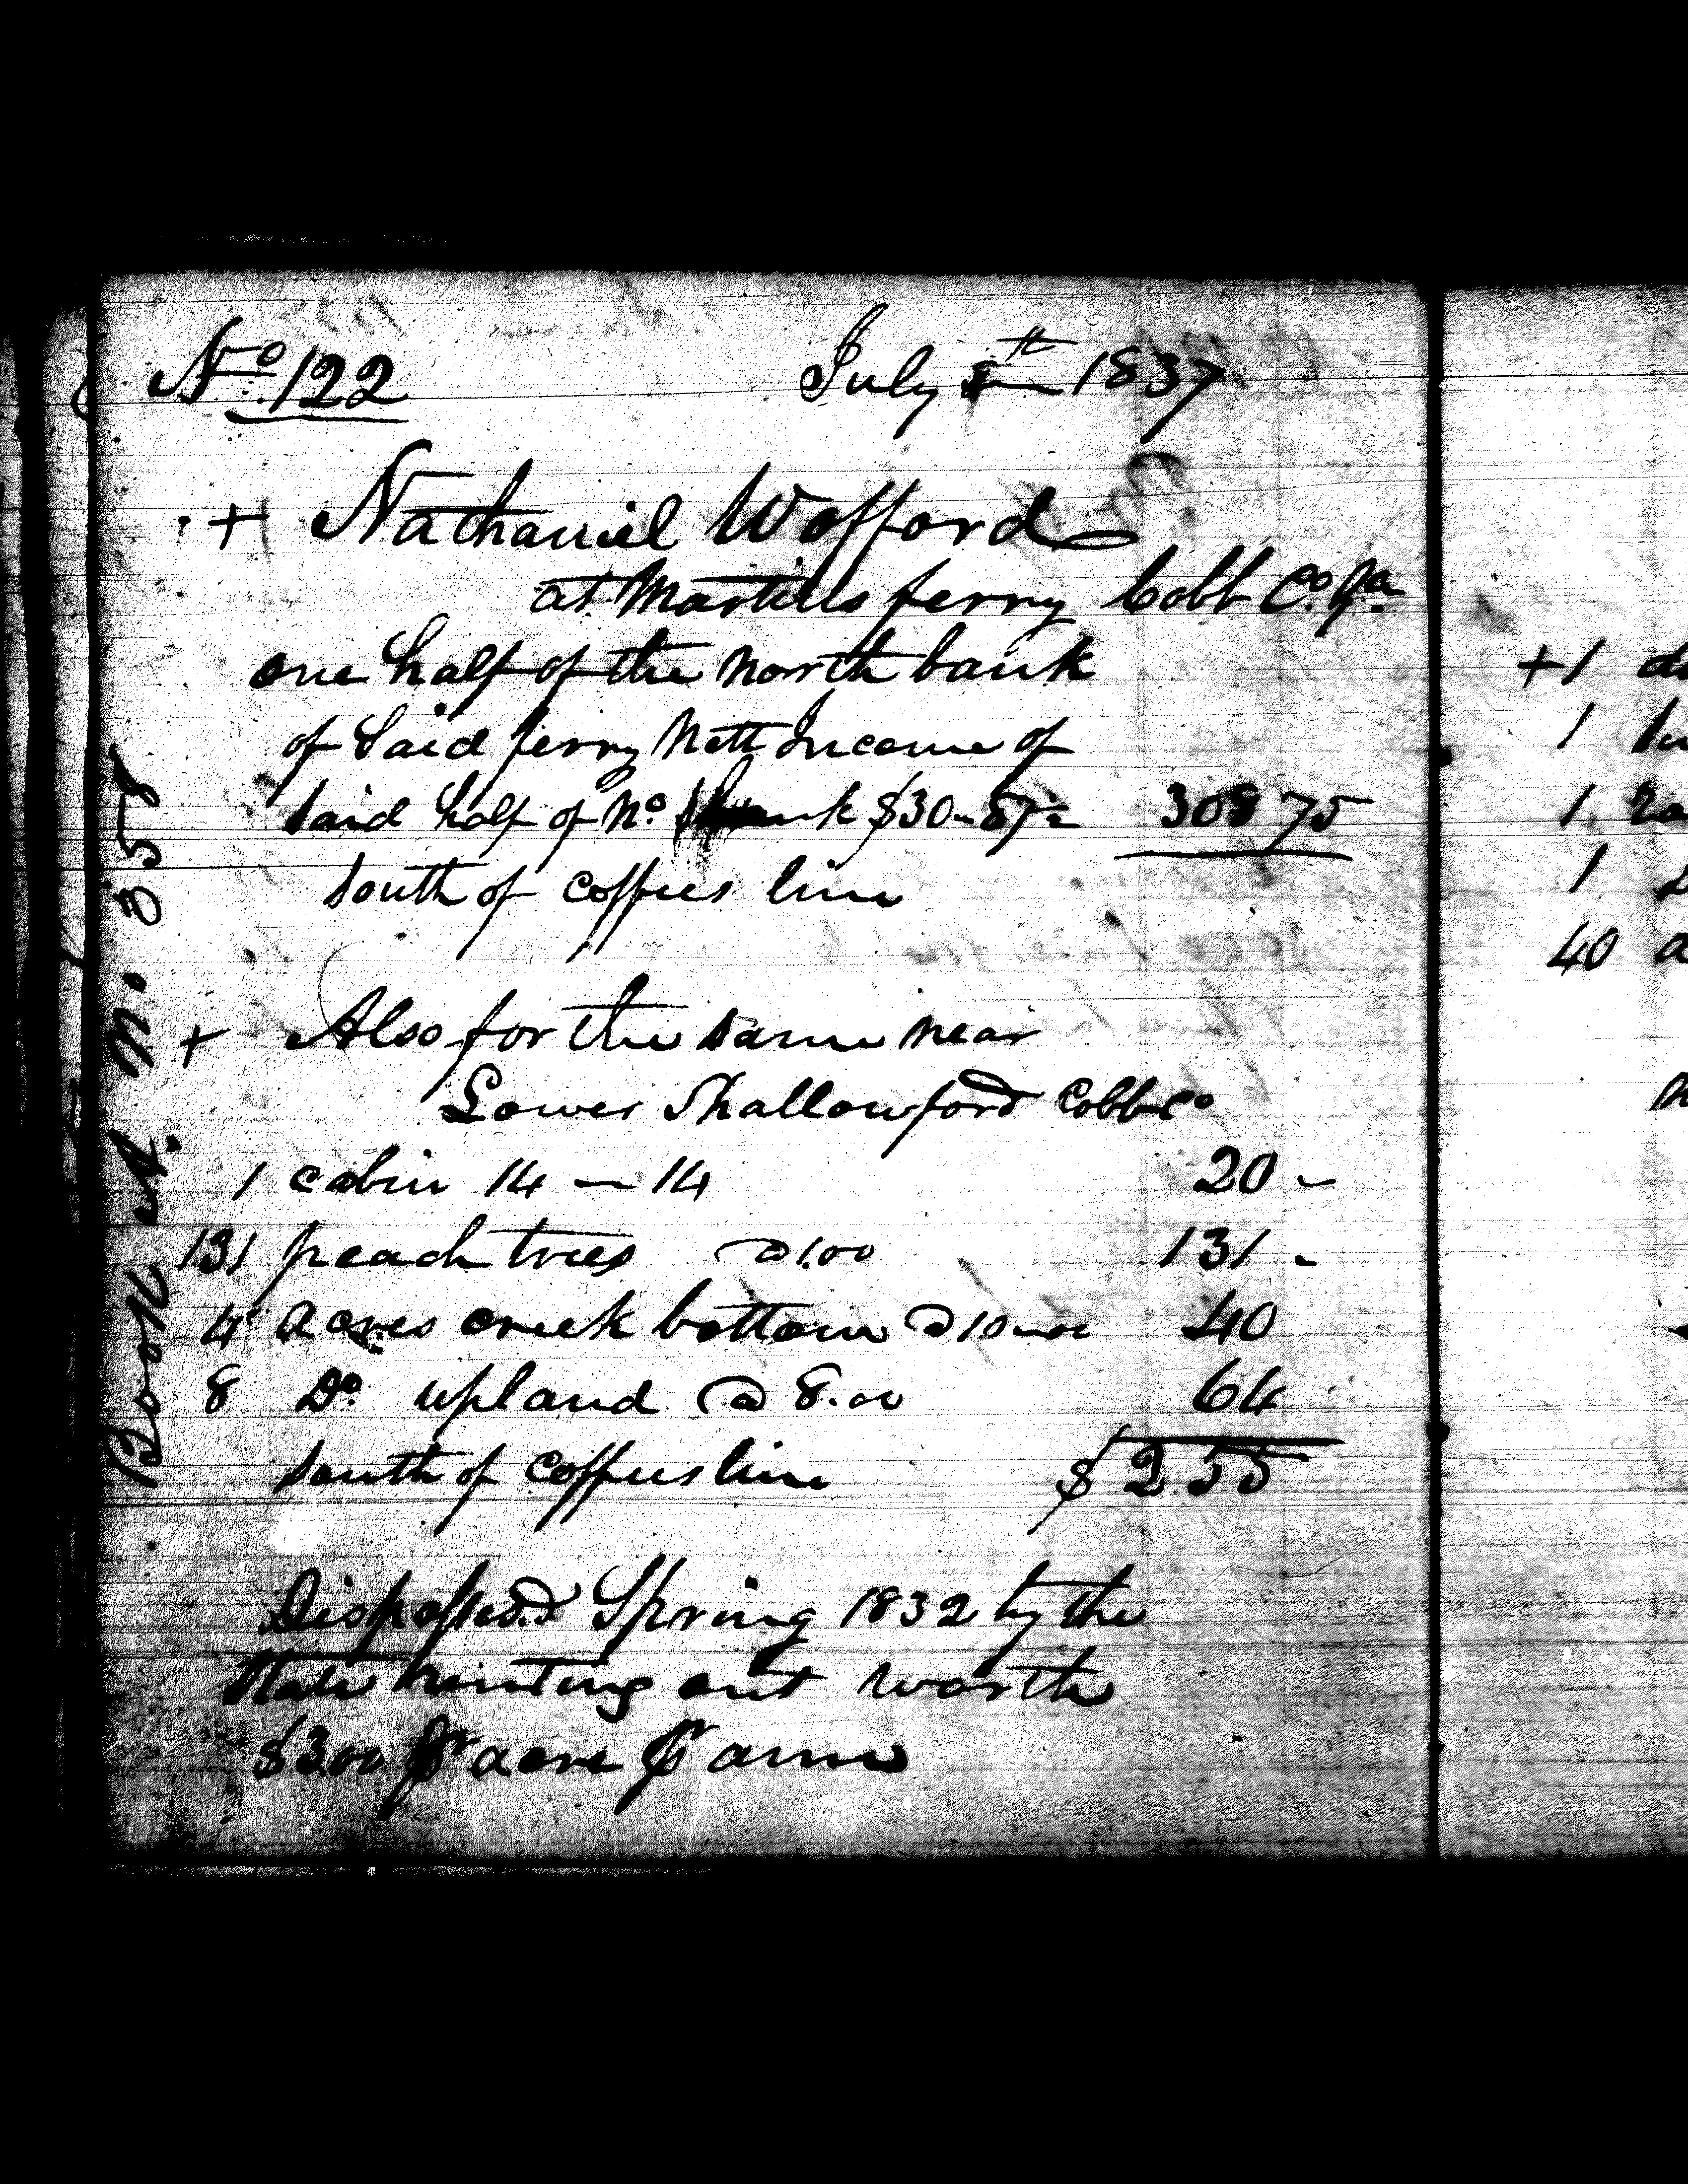 No 122 July 8th 1837
+ Nathaniel Wofford
at Martins ferry Cobb Co. Ga.
one half of the north bank
of Said ferry Nett Income of
Said half of No. bank $30-87½ 308 75
South of Coffees line
+ Also for the same near
Lower Shallowford Cobb Co
1 cabin 14 - 14 20 -
131 peach trees @ 1.00 131 -
4 acres creek bottom @ 10.00 40
8 Do. upland @ 8.00 64
South of Coffees line $255
Dispossesd Spring 1832 by the
State renting out worth
$3.00 pr acre pr annu
Book A. N. 358
+1
1
1
1
40 a